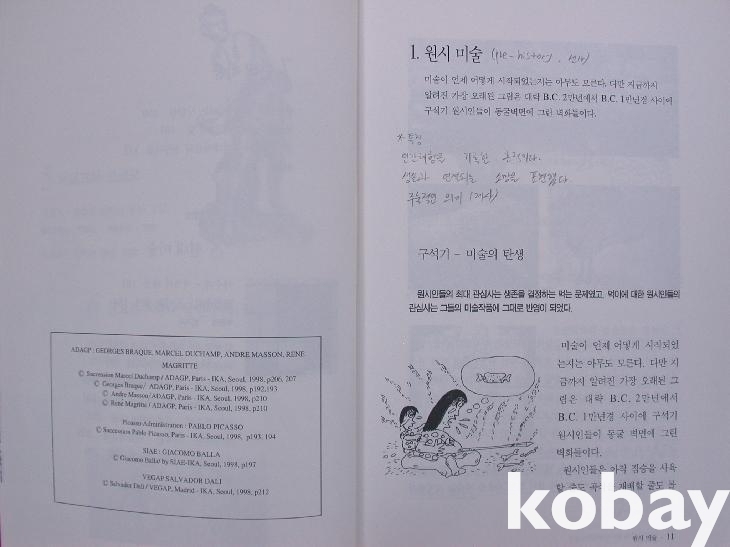 ADAGP : GEORGES BRAQUE, MARCEL DUCHAMP, ANDRE MASSON, RENE
MAGRITTE
© Succession Marcel Duchamp / ADAGP, Paris - IKA, Seoul, 1998, p206, 207
© Georges Braque / ADAGP, Paris - IKA, Seoul, 1998, p192,193
© Andre Masson / ADAGP, Paris - IKA, Seoul, 1998, p210
© René Magritte / ADAGP, Paris - IKA, Seoul, 1998, p210
Picasso Administration : PABLO PICASSO
© Succession Pablo Picasso, Paris - IKA, Seoul, 1998, p193, 194
SIAE : GIACOMO BALLA
© Giacomo Balla / by SIAE-IKA, Seoul, 1998, p197
VEGAP SALVADOR DALI
© Salvador Dali / VEGAP, Madrid - IKA, Seoul, 1998, p212
1. 원시 미술 (pre-history, 선사)
미술이 언제 어떻게 시작되었는지는 아무도 모른다. 다만 지금까지
알려진 가장 오래된 그림은 대략 B.C. 2만년에서 B.C. 1만년경 사이에
구석기 원시인들이 동굴벽면에 그린 벽화들이다.
*특징
기록한 흔적이다.
생존과 연결되는 소망을 표현했다
주술적인 의미 (제사)
구석기 - 미술의 탄생
원시인들의 최대 관심사는 생존을 결정하는 먹는 문제였고, 먹이에 대한 원시인들의
관심사는 그들의 미술작품에 그대로 반영이 되었다.
미술이 언제 어떻게 시작되었
는지는 아무도 모른다. 다만 지
금까지 알려진 가장 오래된 그
림은 대략 B.C. 2만년에서
B.C. 1만년경 사이에 구석기
원시인들이 동굴 벽면에 그린
벽화들이다.
원시인들은 아직 짐승을 사육
할 줄도 재배할 줄도 몰
원시 미술 · 11
kobay